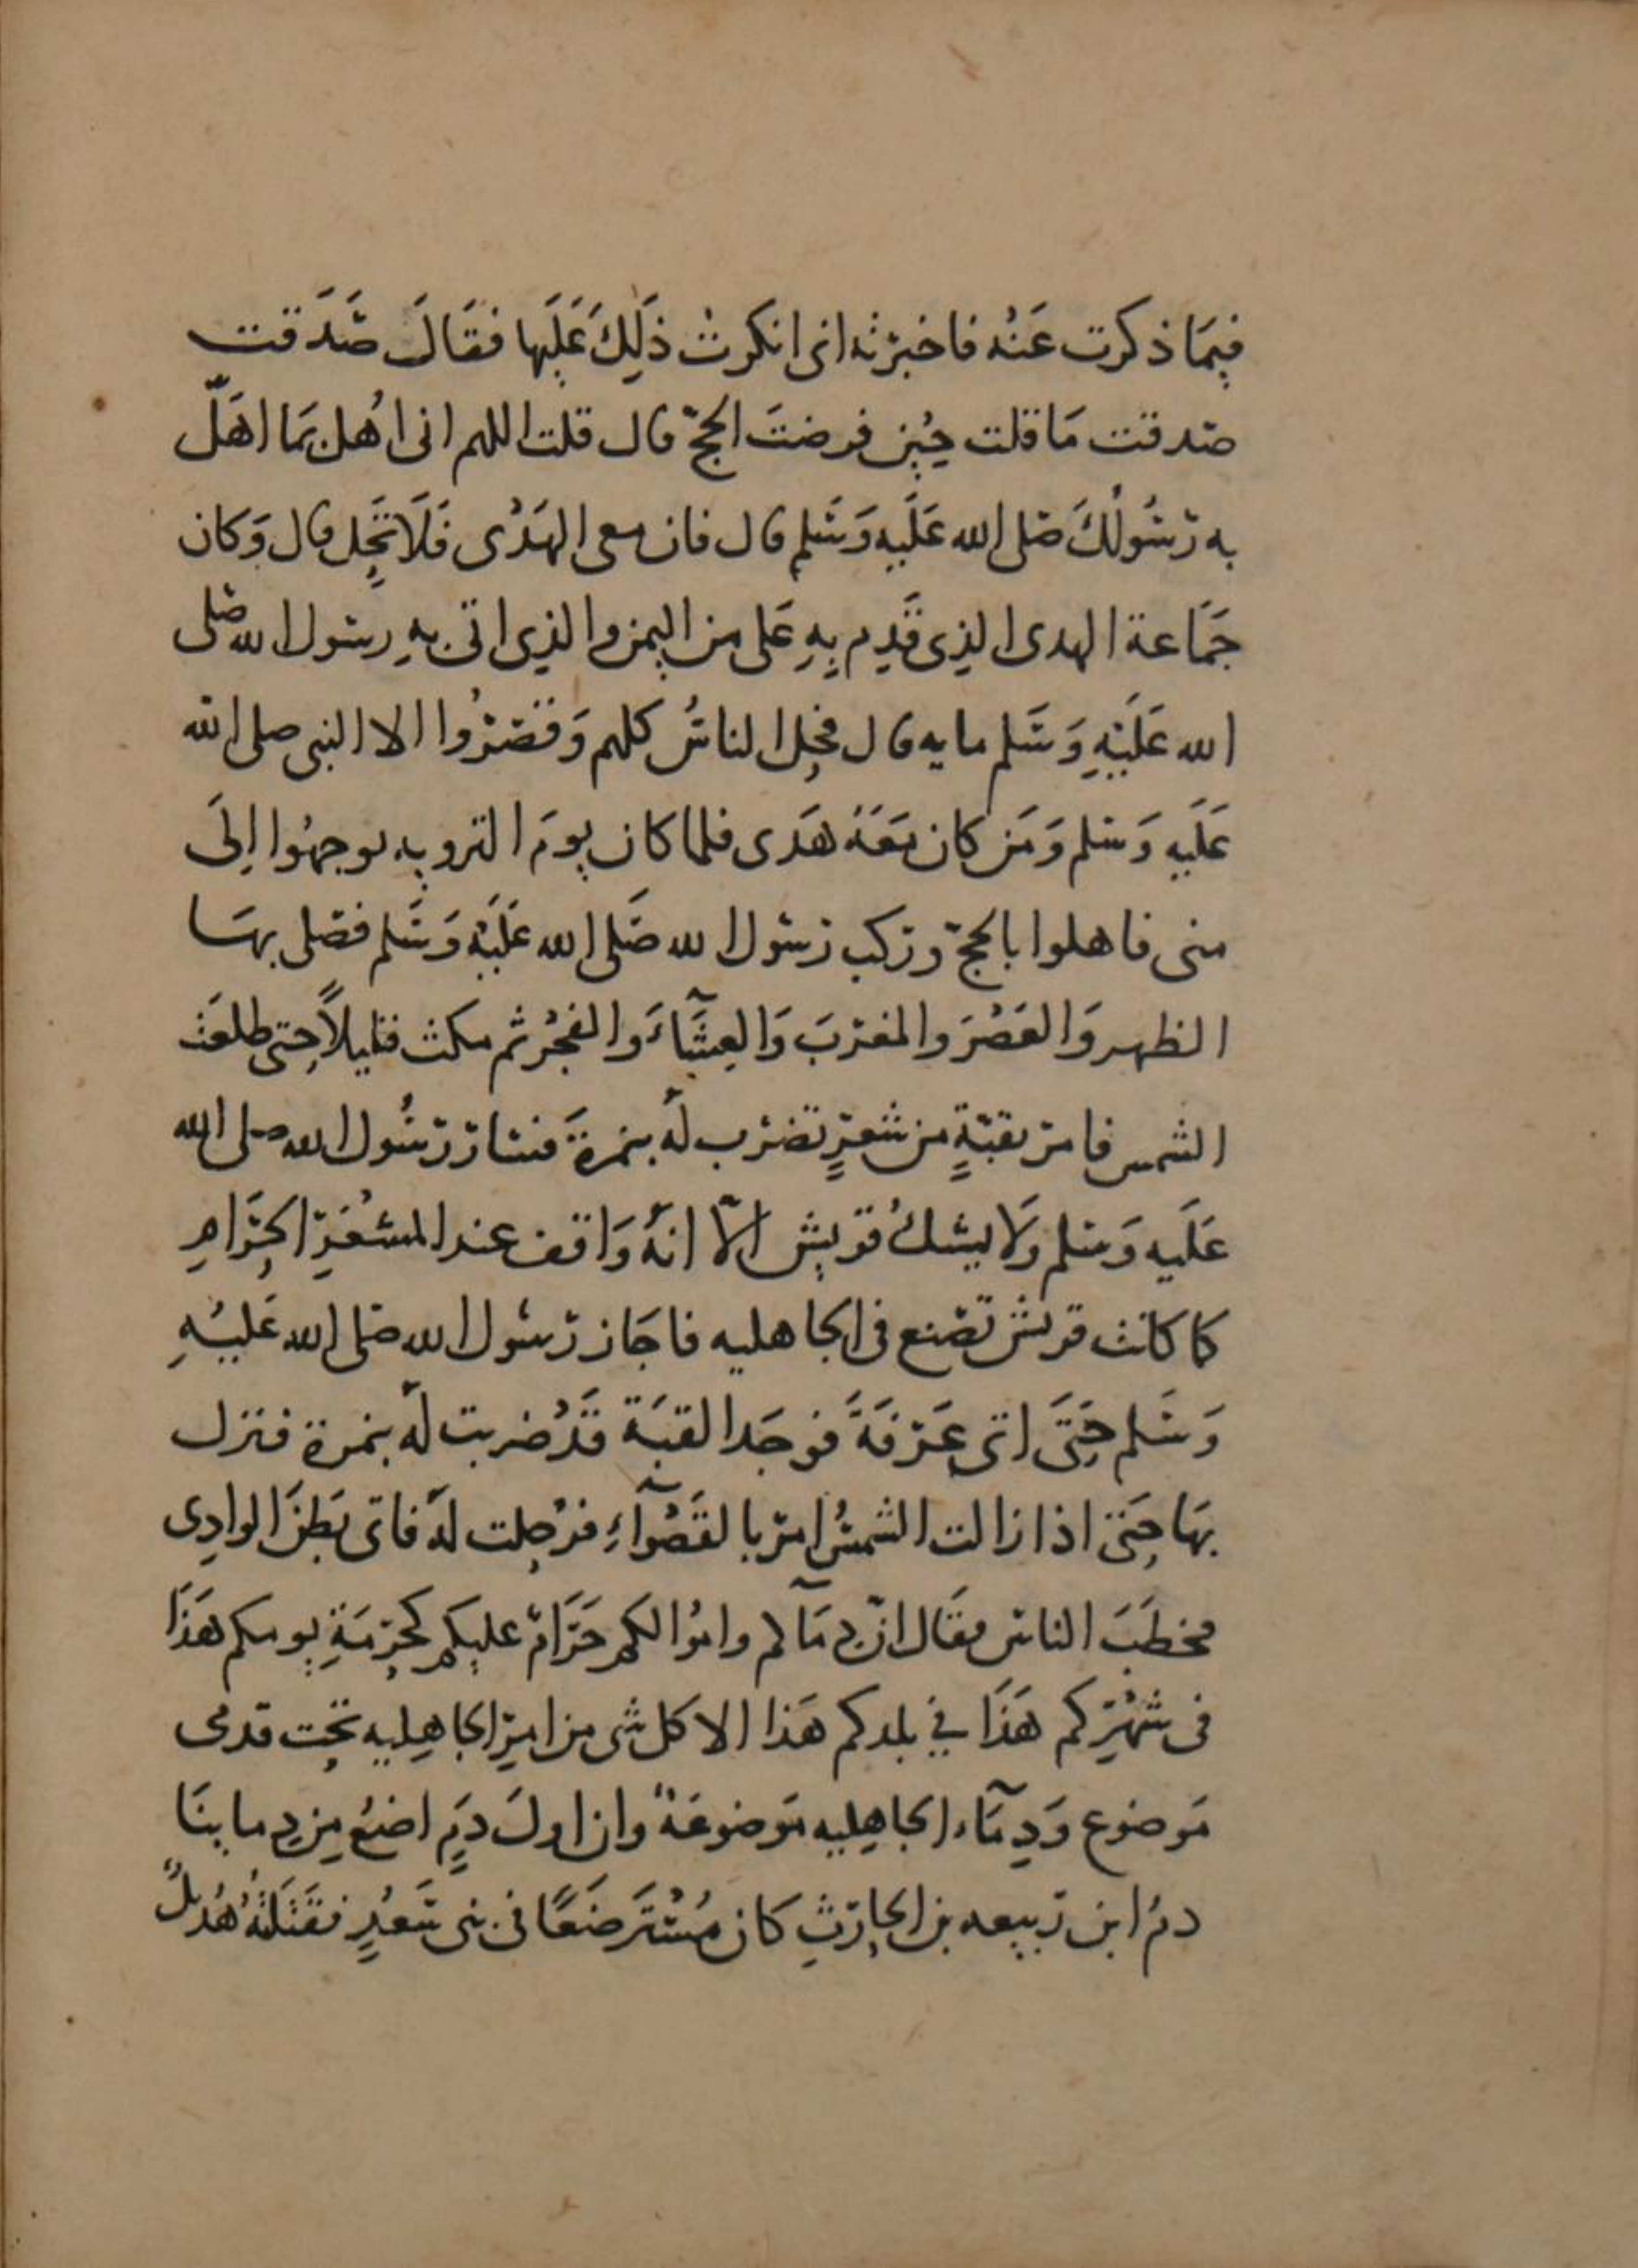 فيمَا ذكرت عَنْه فاخبرْته انى انكرتُ ذَلِكَ عَلَيها فقَالَ صَدَقت
صدقت مَا قلت حِين فرضتَ الحجّ قال قلت اللهم انى اُهل بمَا اهَلّ
به رَسُولُكَ صَلى الله عَلَيهِ وَسَلم قال فان معى الهَدْى فَلَا تحِل قال وَكان
جَمَاعة الهدى الذِى قَدِم بِهِ عَلى من اليمن والذِى اتى بهِ رسول الله صَلى
الله عَلَيْهِ وَسَلم مايه قال فحِل الناسُ كلهم وَقصَّرُوا الا النبى صلى الله
عَلَيهِ وَسَلم وَمَن كان مَعَهُ هَدى فلما كان يومَ الترويه توجهُوا اِلَى
منى فاهلوا بالحجّ وركب رسول الله صَلى الله عَلَيْهِ وَسَلم فصَلى بهَا
الظهر وَالعَصْرَ والمغربَ وَالعِشَآءَ والفجْر ثم مكث قليلاً حتى طلعَت
الشمس فامر بقبّةٍ من شعَرٍ تضرَب لهُ بنمرةَ فسَار رسُول الله صلى الله
عَلَيه وَسَلم وَلا يشكُ قريش الاّ انهُ وَاقف عند المشعَرِ الحَرَامِ
كما كانت قريش تصْنع فى الجاهليه فاجَاز رسُول الله صَلى الله عَليْهِ
وَسَلم حَتَى اتى عَرَفَةَ فوجَد القبَة قَدْ ضربت لهُ بنمرة فنزل
بهَا حتَى اذا زالت الشمسُ امر بالقَصْوآءِ فرُحِلت لهُ فاتى بَطنَ الوادِى
فخطَبَ الناس فقَال انّ دِمَآكم واموَالكم حَرَامٌ عليكم كحُرمَةِ يومكم هَذَا
فى شهْرِكم هَذَا في بلدكم هَذا الا كل شى من امرِ الجاهِليه تحت قدمى
مَوضوع وَدِمَآء الجاهِليه مَوضوعَةٌ وان اولَ دَمٍ اضَعُ مِن دِمايْنَا
دمُ ابن ربيعه بن الحارِث كان مُسْتَرضَعًا فى بنى سَعْدٍ فقَتَلَتْهُ هُذيلٌ